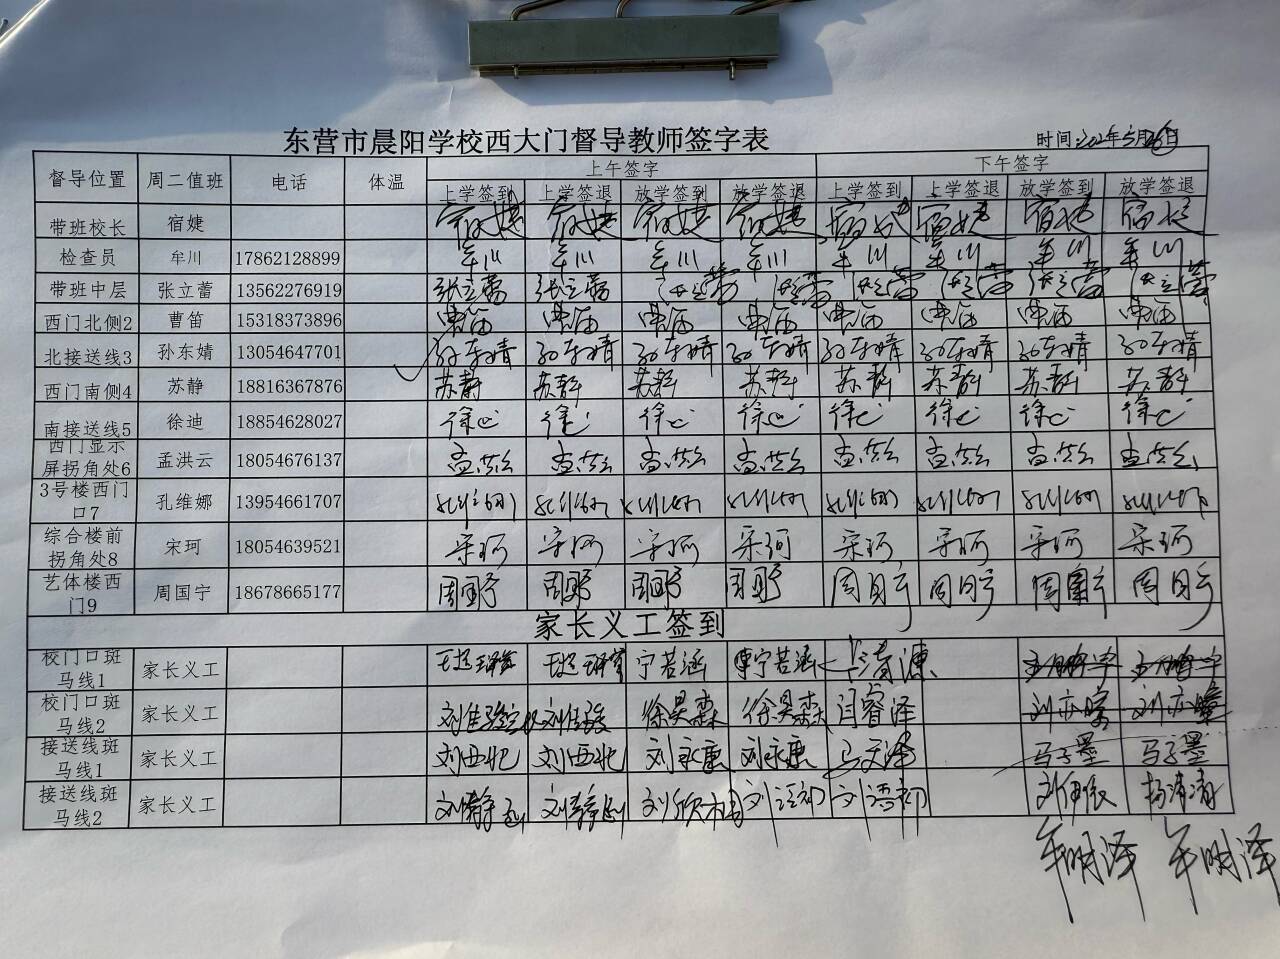 东营市晨阳学校西大门督导教师签字表
时间:
督导位置 周二值班 电话 体温 上午签字 下午签字
上学签到 上学签退 放学签到 放学签退 上学签到 上学签退 放学签到 放学签退
带班校长 宿婕 宿婕 宿婕 宿婕 宿婕 宿婕 宿婕 宿婕 宿婕
检查员 牟川 17862128899 牟川 牟川 牟川 牟川 牟川 牟川 牟川 牟川
带班中层 张立蕾 13562276919 张立蕾 张立蕾 张立蕾 张立蕾 张立蕾 张立蕾 张立蕾 张立蕾
西门北侧2 曹笛 15318373896 曹笛 曹笛 曹笛 曹笛 曹笛 曹笛 曹笛 曹笛
北接送线3 孙东婧 13054647701 孙东婧 孙东婧 孙东婧 孙东婧 孙东婧 孙东婧 孙东婧 孙东婧
西门南侧4 苏静 18816367876 苏静 苏静 苏静 苏静 苏静 苏静 苏静 苏静
南接送线5 徐迪 18854628027 徐迪 徐迪 徐迪 徐迪 徐迪 徐迪 徐迪 徐迪
西门显示
屏拐角处6 孟洪云 18054676137 孟洪云 孟洪云 孟洪云 孟洪云 孟洪云 孟洪云 孟洪云 孟洪云
3号楼西门
口7 孔维娜 13954661707 孔维娜 孔维娜 孔维娜 孔维娜 孔维娜 孔维娜 孔维娜 孔维娜
综合楼前
拐角处8 宋珂 18054639521 宋珂 宋珂 宋珂 宋珂 宋珂 宋珂 宋珂 宋珂
艺体楼西
门9 周国宁 18678665177 周国宁 周国宁 周国宁 周国宁 周国宁 周国宁 周国宁 周国宁
家长义工签到
校门口班
马线1 家长义工 宁若涵 宁若涵
校门口班
马线2 家长义工 徐昊森 徐昊森 闫睿泽
接送线班
马线1 家长义工 刘西圯 刘西圯 刘永康 刘永康 马子墨 马子墨
接送线班
马线2 家长义工 杨清清
牟明泽 牟明泽